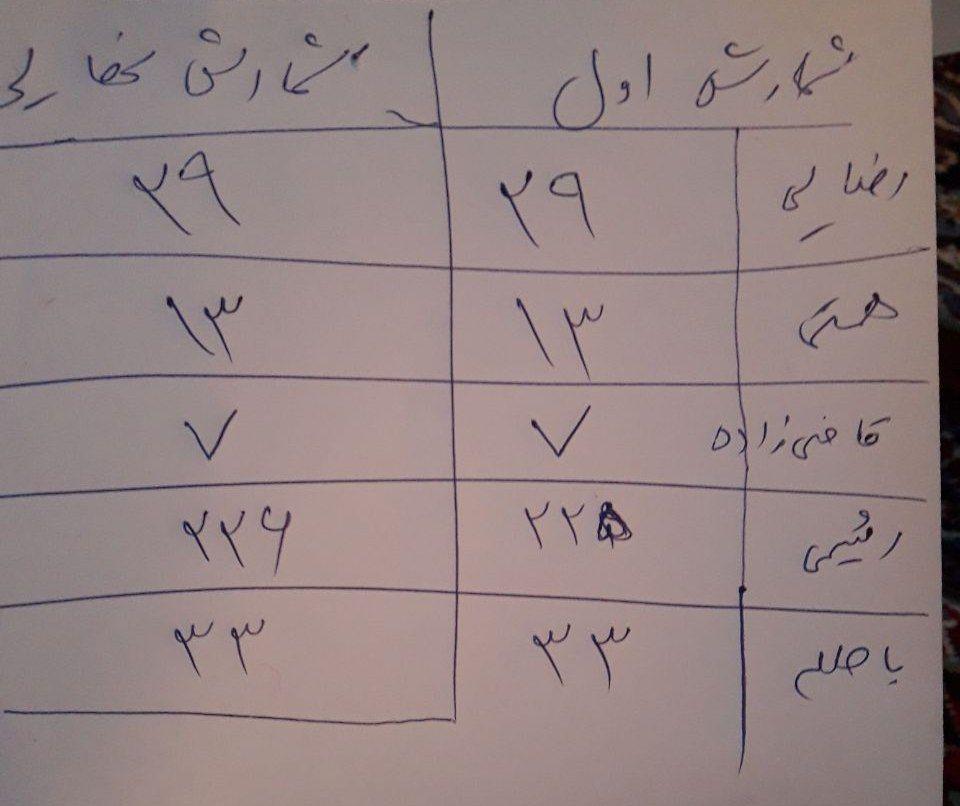 شمارش اول شمارش نهایی
رضایی ۲۹ ۲۹
همتی ۱۳ ۱۳
قاضی‌زاده ۷ ۷
رئیسی ۲۲۵ ۲۲۶
باطله ۳۳ ۳۳